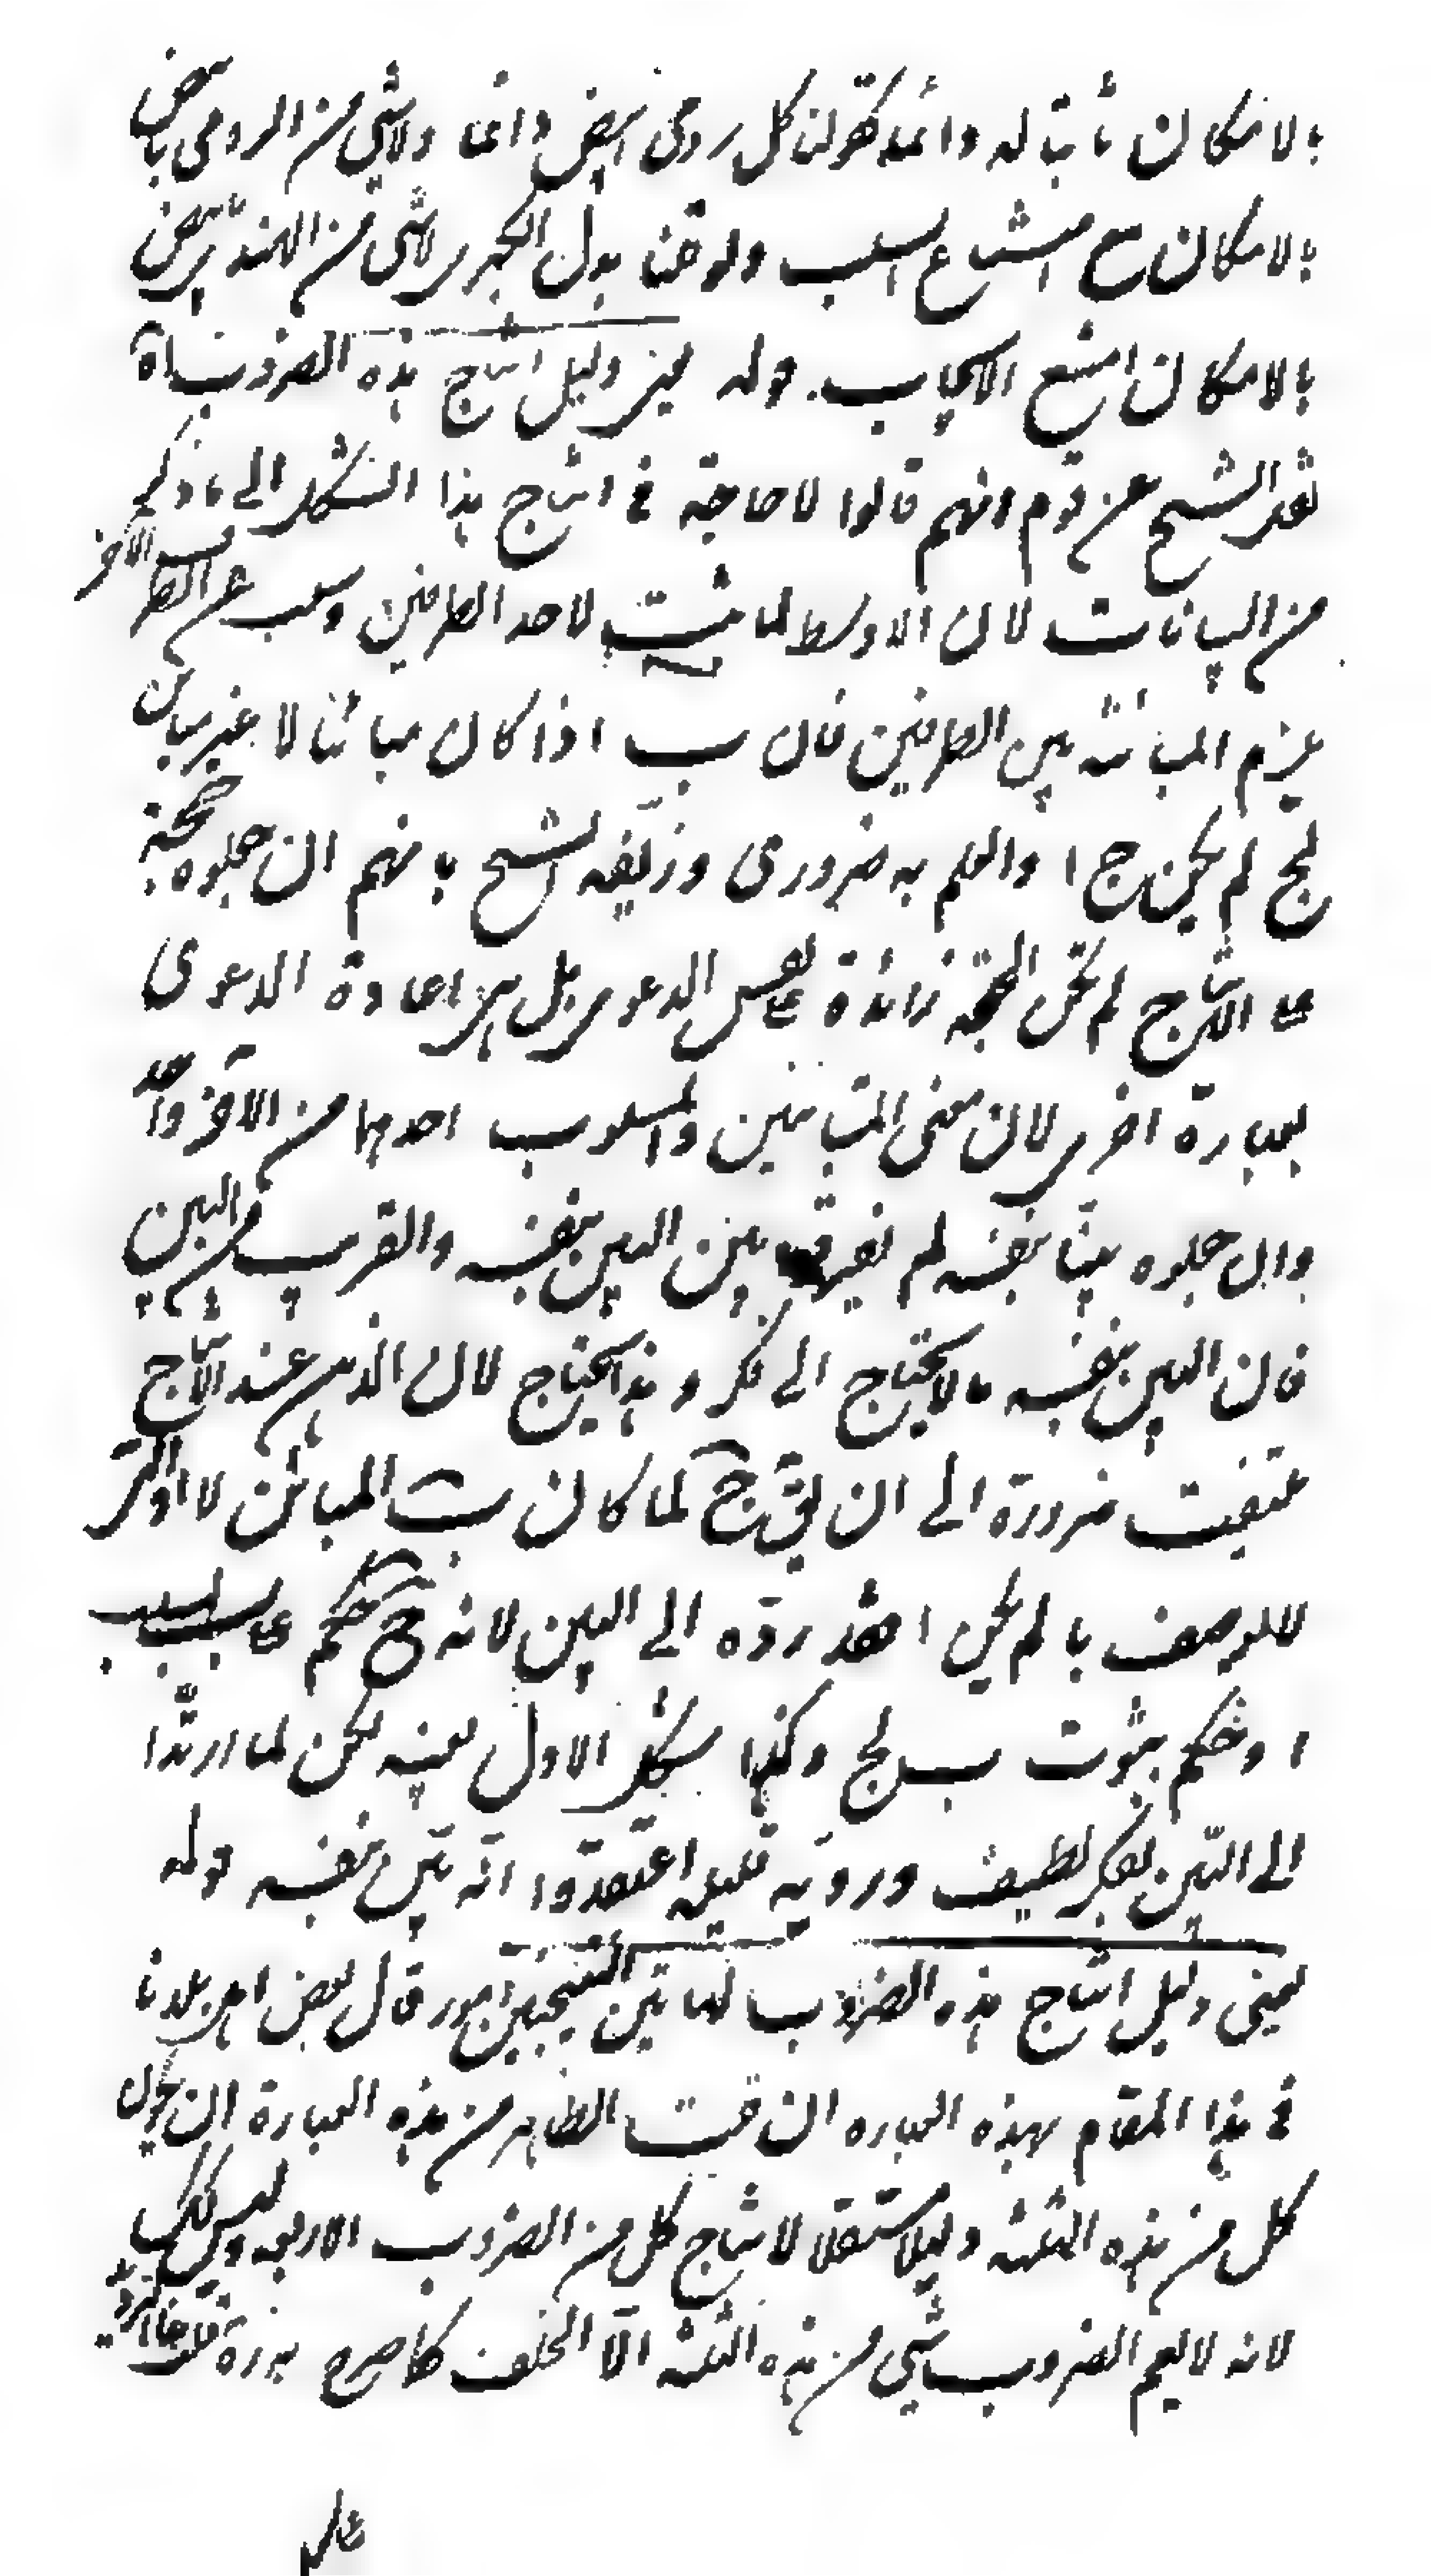 بالامكان ثابتا له دائما كقولنا كل رومى ابيض دائما ولا شئ من الرومى بابيض
بالامكان مع امتناع السلب ولو قلنا بدل الكبرى لا شئ من الهندى بابيض
بالامكان امتنع الايجاب قوله يعنى دليل انتاج هذه الضروب اه
نقل الشيخ عن قوم انهم قالوا لا حاجة فى انتاج هذا الشكل الى ما ذكر
من البيانات لان الاوسط لما ثبت لاحد الطرفين وسلب عن الطرف الآخر
يلزم المباينة بين الطرفين فان ب اذا كان مباينا لا غير مباين
لج لم يكن ج ا والعلم به ضرورى وزيفه الشيخ بانهم ان جعلوه حجة
على الانتاج لم تكن الحجة زائدة على نفس الدعوى بل هى اعادة الدعوى
بعبارة اخرى لان معنى المتباينين والمسلوب احدهما من الآخر واحد
وان جعلوه بينا بنفسه لم يفرقوا بين البين بنفسه والقريب من البين
فان البين بنفسه ما لا يحتاج الى فكر وهذا يحتاج لان الذهن عند الانتاج
يلتفت ضرورة الى ان يق ج لما كان ب المباين لا او التر
للوصف بالم يكن ا فقد ردوه الى البين لانه ح حكم على ب بسلب
ا وحكم بثبوت ب لج وكذا شكل الاول بعينه لكن لما ارتدا
الى البين بفكر لطيف وروية قليلة اعتقدوا انه بين بنفسه قوله
يعنى دليل انتاج هذه الضروب لهاتين النتيجتين امور قال بعض اهل بلدنا
فى هذا المقام بهذه العبارة ان قلت الظاهر من هذه العبارة ان يكون
كل من هذه الثلثة دليلا مستقلا لانتاج كل من الضروب الاربعة وليس كذلك
لانه لا يعم الضروب شئ من هذه الثلثة الا الخلف كما صرح به